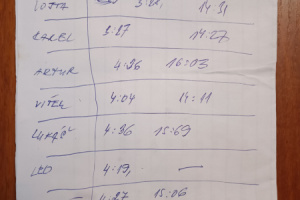 LOTTA 14:31
KAREL 3:27 14:27
ARTUR 4:26 16:03
VÍTEK 4:04 14:11
LUKÁŠ 4:36 15:69
LEO 4:19, —
4:27 15:06